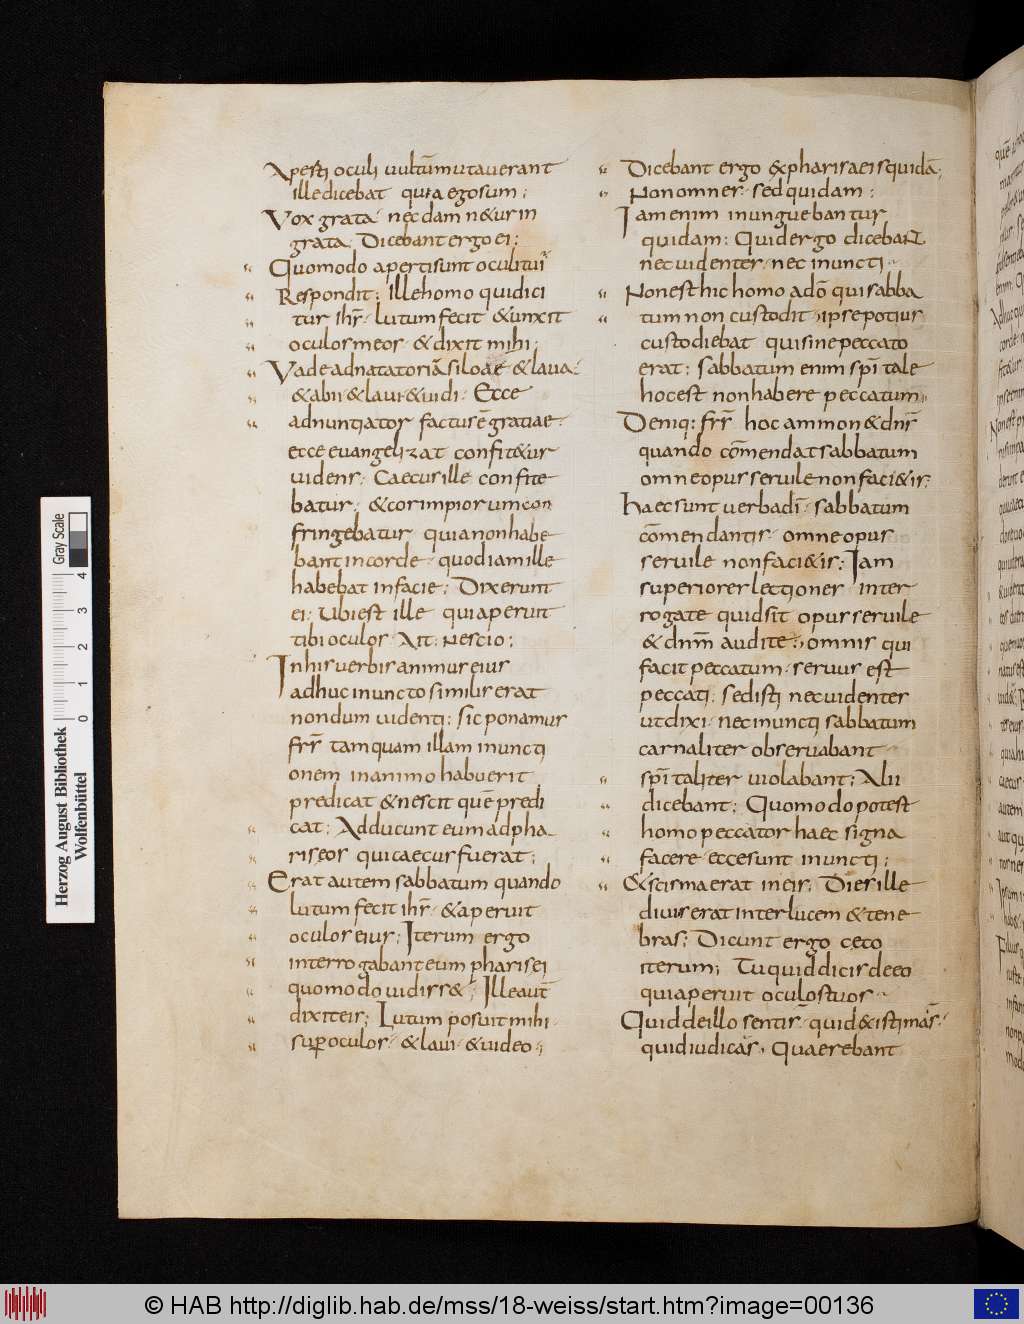 Apesti oculi uultūmutauerant
illedicebat quia egosum;
Vox grata necdam n&ur in
grata. Dicebantergoei;
Quomodo apertisunt oculitui
Respondit; illehomo quidici
tur ihs̄ lutumfecit &unxit
oculosmeos &dixit mihi;
Vadeadnatatoriā siloae &laua
&abii &laui &uidi. Ecce
adnuntiator factusē gratiae
ecce euangelizat confit&ur
uidens; Caecusille confite
batur; &corimpiorumcon
fringebatur quianonhabe
bantincorde quodiamille
habebat infacie; Dixerunt
ei; Ubiest ille quiaperuit
tibioculos Ait; nescio;
Inhisuerbisanimuseius
adhucinunctosimiliserat
nondum uidenti; sicponamus
frs̄ tamquam illam inuncti
onem inanimo habuerit
predicat &nescit quē predi
cat; Adducunt eumadpha
riseos quicaecusfuerat;
Erat autem sabbatum quando
lutum fecit ihs̄ &aperuit
oculoseius; Iterum ergo
interrogabanteum pharisei
quomodo uidiss&; Illeaut̄
dixiteis; Lutum posuitmihi
sup oculos &laui &uideo;
Dicebant ergo &pharisaeisquidā;
Nonomnes sedquidam;
Iamenim inunguebantur
quidam; Quidergo dicebant
necuidentes nec inuncti
Nonesthichomo adō quisabba
tumnon custodit ipsepotius
custodiebat quisinepeccato
erat; sabbatum enim spītale
hocest nonhabere peccatum
Deniq; frs̄ hocammon&dns̄
quando cōmendatsabbatum
omneopusseruilenonfaci&is;
haecsuntuerbadī sabbatum
cōmendantis omneopus
seruile nonfaci&is; Iam
superioreslectiones inter
rogate quidsit opusseruile
&dnm̄ audite; omnis qui
facitpeccatum seruus est
peccati; sedisti necuidentes
utdixi necinuncti sabbatum
carnaliter obseruabant
spītaliter uiolabant; Alii
dicebant; Quomodopotest
homopeccatorhaec signa
facere eccesunt inuncti;
&scismaerat ineis; Diesille
diuiserat interlucem &tene
bras; Dicunt ergo ceco
iterum; Tuquiddicisdeeo
quiaperuit oculostuos
Quiddeillo sentis quid&istimas
quidiudicas Quaerebant
Herzog August Bibliothek
Wolfenbüttel
Gray Scale
0 1 2 3 4
© HAB http://diglib.hab.de/mss/18-weiss/start.htm?image=00136